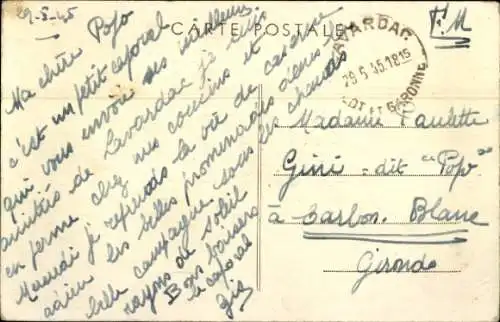 29-5-45
CARTE POSTALE
F.M
LAVARDAC
29.5.45.18 15
LOT ET GARONNE
Ma chère Popo
c'est un petit caporal
qui vous envoie ses meilleures
amitiés de Lavardac je suis
en ferme chez mes cousins et
Mercredi je reprends la vie de caserne
adieu les belles promenades dans la
belle campagne sous les chauds
rayons de soleil
Bons baisers
le caporal
Madame Paulette
Giné = dit "Popo"
à Carbon. Blanc
Gironde